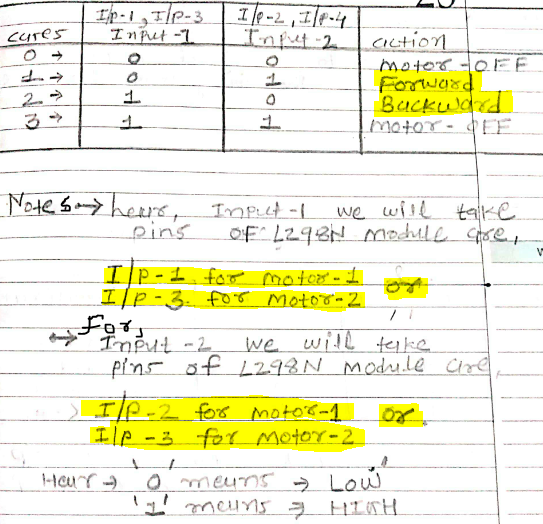 I/p-1, I/p-3 I/p-2, I/p-4
cases Input-1 Input-2 action
0 → 0 0 motor-OFF
1 → 0 1 Forward
2 → 1 0 Backward
3 → 1 1 motor-OFF
Notes → hear, Input-1 we will take
pins OF L298N module are,
I/p-1 for motor-1 or
I/p-3 for motor-2
↔ For,
Input-2 we will take
pins of L298N module are,
I/p-2 for motor-1 or
I/p-3 for motor-2
Hear → '0' means → LOW
'1' means → HIGH